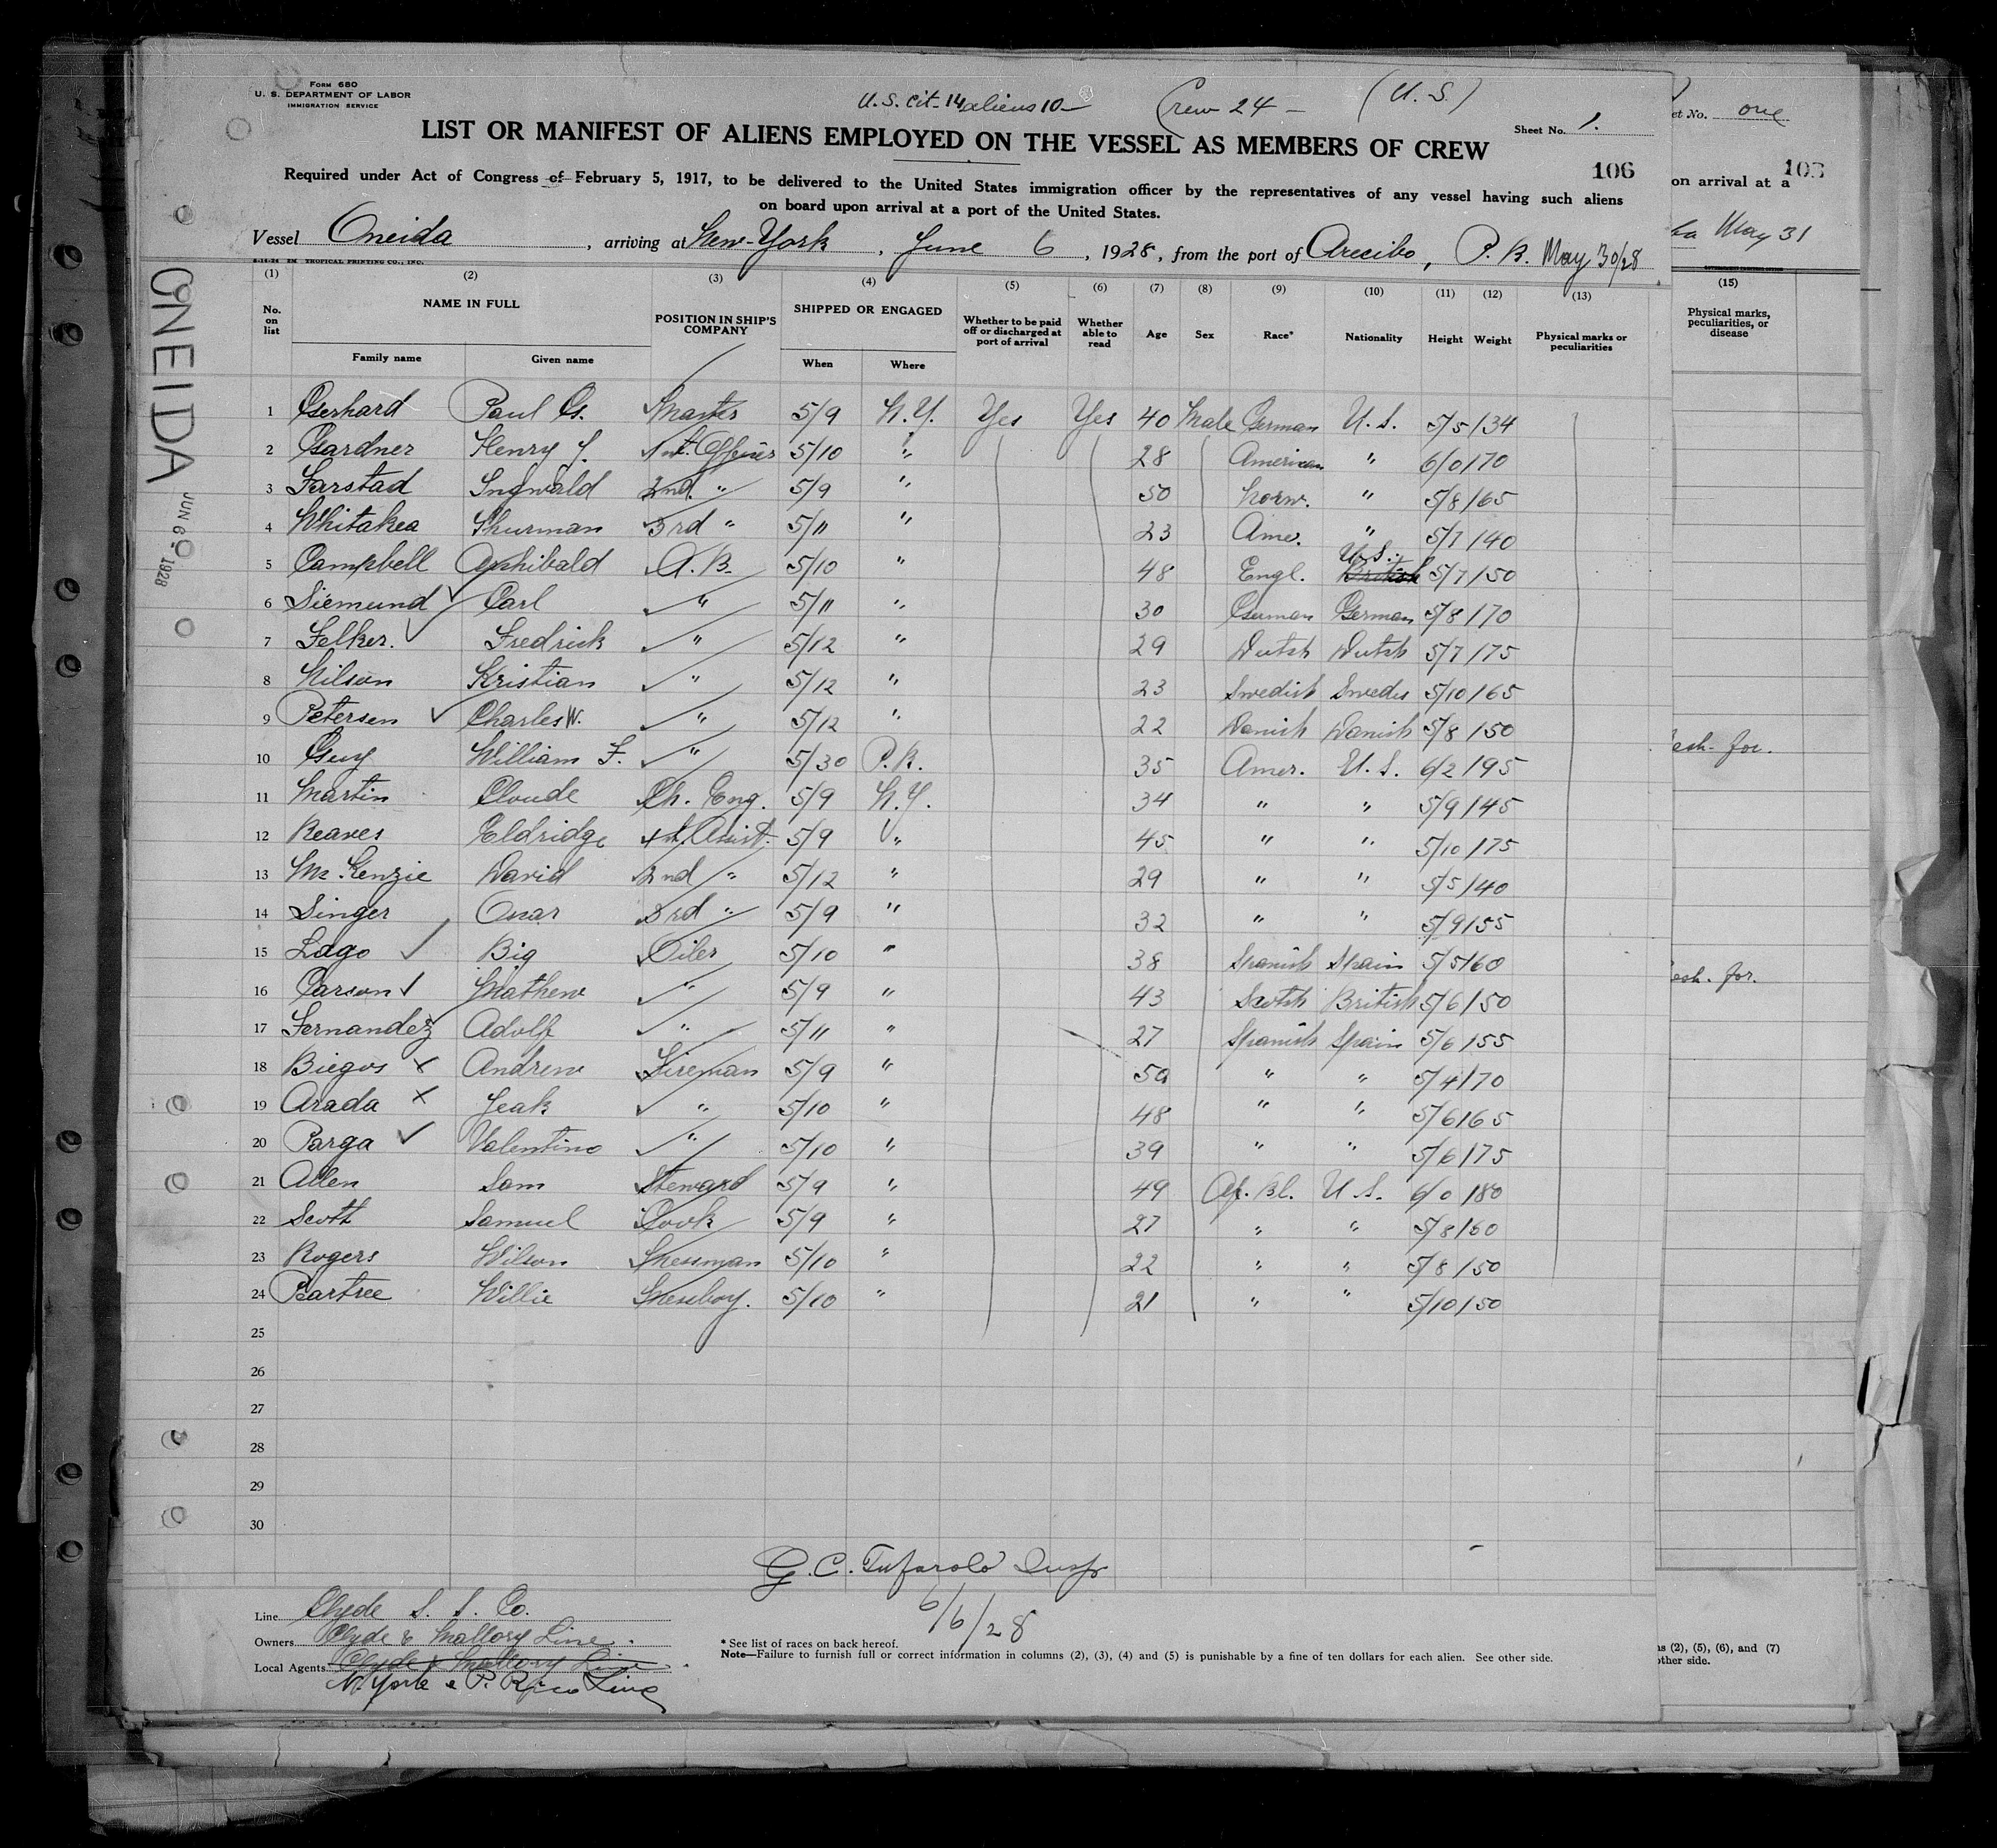 Form 680
U. S. DEPARTMENT OF LABOR
IMMIGRATION SERVICE
U.S. cit-14 aliens 10- Crew 24- (U.S.)
Sheet No. 1.
et No. one
LIST OR MANIFEST OF ALIENS EMPLOYED ON THE VESSEL AS MEMBERS OF CREW
106
103
Required under Act of Congress of February 5, 1917, to be delivered to the United States immigration officer by the representatives of any vessel having such aliens
on board upon arrival at a port of the United States.
on arrival at a
Vessel Oneida, arriving at New-York, June 6, 1928, from the port of Arecibo, P. R. May 30/28
May 31
TROPICAL PRINTING CO., INC.
ONEIDA
JUN 6 - 1928
(1) (2) (3) (4) (5) (6) (7) (8) (9) (10) (11) (12) (13) (15)
No. on list NAME IN FULL Family name Given name POSITION IN SHIP'S COMPANY SHIPPED OR ENGAGED When Where Whether to be paid off or discharged at port of arrival Whether able to read Age Sex Race* Nationality Height Weight Physical marks or peculiarities
Physical marks, peculiarities, or disease
1 Gerhard Paul G. Master 5/9 N.Y. Yes Yes 40 Male German U.S. 5/5 134
2 Gardner Henry J. 1st. Officer 5/10 " 28 American " 6/0 170
3 Farstad Ingwald 2nd. " 5/9 " 50 Norw. " 5/8 165
4 Whitakea Thurman 3rd " 5/11 " 23 Ame. " 5/7 140
5 Campbell Archibald A.B. 5/10 " 48 Engl. British U.S. 5/7 150
6 Siemund Carl " 5/11 " 30 German German 5/8 170
7 Felker. Fredrick " 5/12 " 29 Dutch Dutch 5/7 175
8 Nilson Kristian " 5/12 " 23 Swedish Swedis 5/10 165
9 Petersen Charles W. " 5/12 " 22 Danish Danish 5/8 150
10 Guy William F. " 5/30 P.R. 35 Amer. U.S. 6/2 195
11 Martin Cloude Ch. Eng. 5/9 N.Y. 34 " " 5/9 145
12 Reaves Eldridge 1st. Assist. 5/9 " 45 " " 5/10 175
13 Mc. Kenzie David 2nd " 5/12 " 29 " " 5/5 140
14 Singer Oscar 3rd " 5/9 " 32 " " 5/9 155
15 Lago Big Oiler 5/10 " 38 Spanish Spain 5/5 160
16 Carson Mathew " 5/9 " 43 Scotch British 5/6 150
17 Fernandez Adolf " 5/11 " 27 Spanish Spain 5/6 155
18 Biegos Andrew Fireman 5/9 " 50 " " 5/4 170
19 Arada Jeak " 5/10 " 48 " " 5/6 165
20 Parga Valentino " 5/10 " 39 " " 5/6 175
21 Allen Sam Steward 5/9 " 49 Af. Bl. U.S. 6/0 180
22 Scott Samuel Cook 5/9 " 27 " " 5/8 160
23 Rogers Wilson Messman 5/10 " 22 " " 5/8 150
24 Peartree Willie Messboy. 5/10 " 21 " " 5/10 150
25
26
27
28
29
30
G. C. Tufarolo Insp
6/6/28
Line Clyde S. S. Co.
Owners Clyde & Mallory Line.
Local Agents Clyde & Mallory Line.
N. York & P. Rico Line
* See list of races on back hereof.
Note—Failure to furnish full or correct information in columns (2), (3), (4) and (5) is punishable by a fine of ten dollars for each alien. See other side.
(2), (5), (6), and (7)
other side.